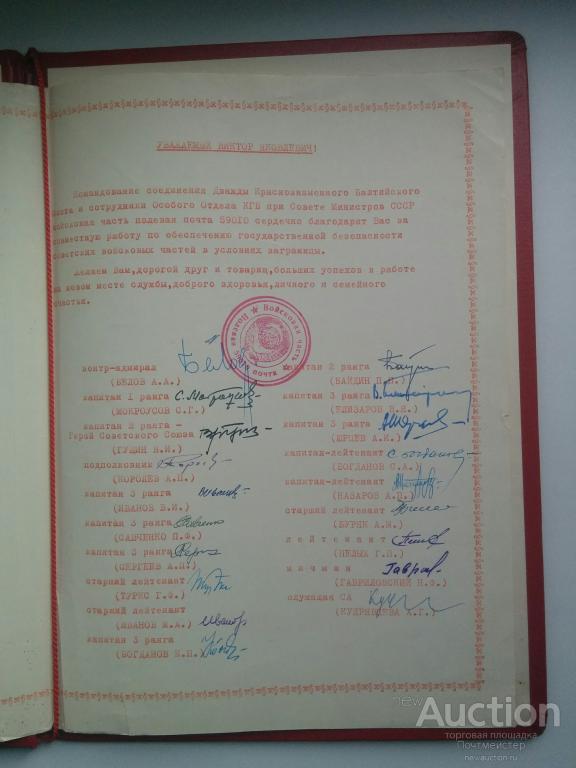 УВАЖАЕМЫЙ ВИКТОР ЯКОВЛЕВИЧ!
Командование соединения Дважды Краснознаменного Балтийского
флота и сотрудники Особого Отдела КГБ при Совете Министров СССР
войсковая часть полевая почта 59010 сердечно благодарят Вас за
совместную работу по обеспечению государственной безопасности
советских войсковых частей в условиях заграницы.
Желаем Вам,дорогой друг и товарищ,больших успехов в работе
на новом месте службы,доброго здоровья,личного и семейного
счастья.
Войсковая часть
Полевая почта
контр-адмирал
(БЕЛОВ А.А.)
капитан 1 ранга
(МОКРОУСОВ С.Г.)
капитан 2 ранга -
Герой Советского Союза
(ГУЩИН Н.И.)
подполковник
(КОРОЛЕВ А.П.)
капитан 3 ранга
(ИВАНОВ В.И.)
капитан 3 ранга
(САВЧЕНКО П.Ф.)
капитан 3 ранга
(СЕРГЕЕВ А.П.)
старший лейтенант
(ТУРКС Г.Ф.)
старший лейтенант
(ИВАНОВ М.А.)
капитан 3 ранга
(БОГДАНОВ Н.Н.)
капитан 2 ранга
(БАЙДИН П.Н.)
капитан 3 ранга
(ЕЛИЗАРОВ В.Я.)
капитан 3 ранга
(ЕРЦЕВ А.И.)
капитан-лейтенант
(БОГДАНОВ С.А.)
капитан-лейтенант
(НАЗАРОВ А.П.)
старший лейтенант
(БУРЯК А.Н.)
лейтенант
(БЕЛЫХ Г.П.)
мичман
(ГАВРИЛОВСКИЙ Н.Ф.)
служащая СА
(КУДРЯВЦЕВА А.Г.)
new Auction
торговая площадка
Почтмейстер
newauction.ru